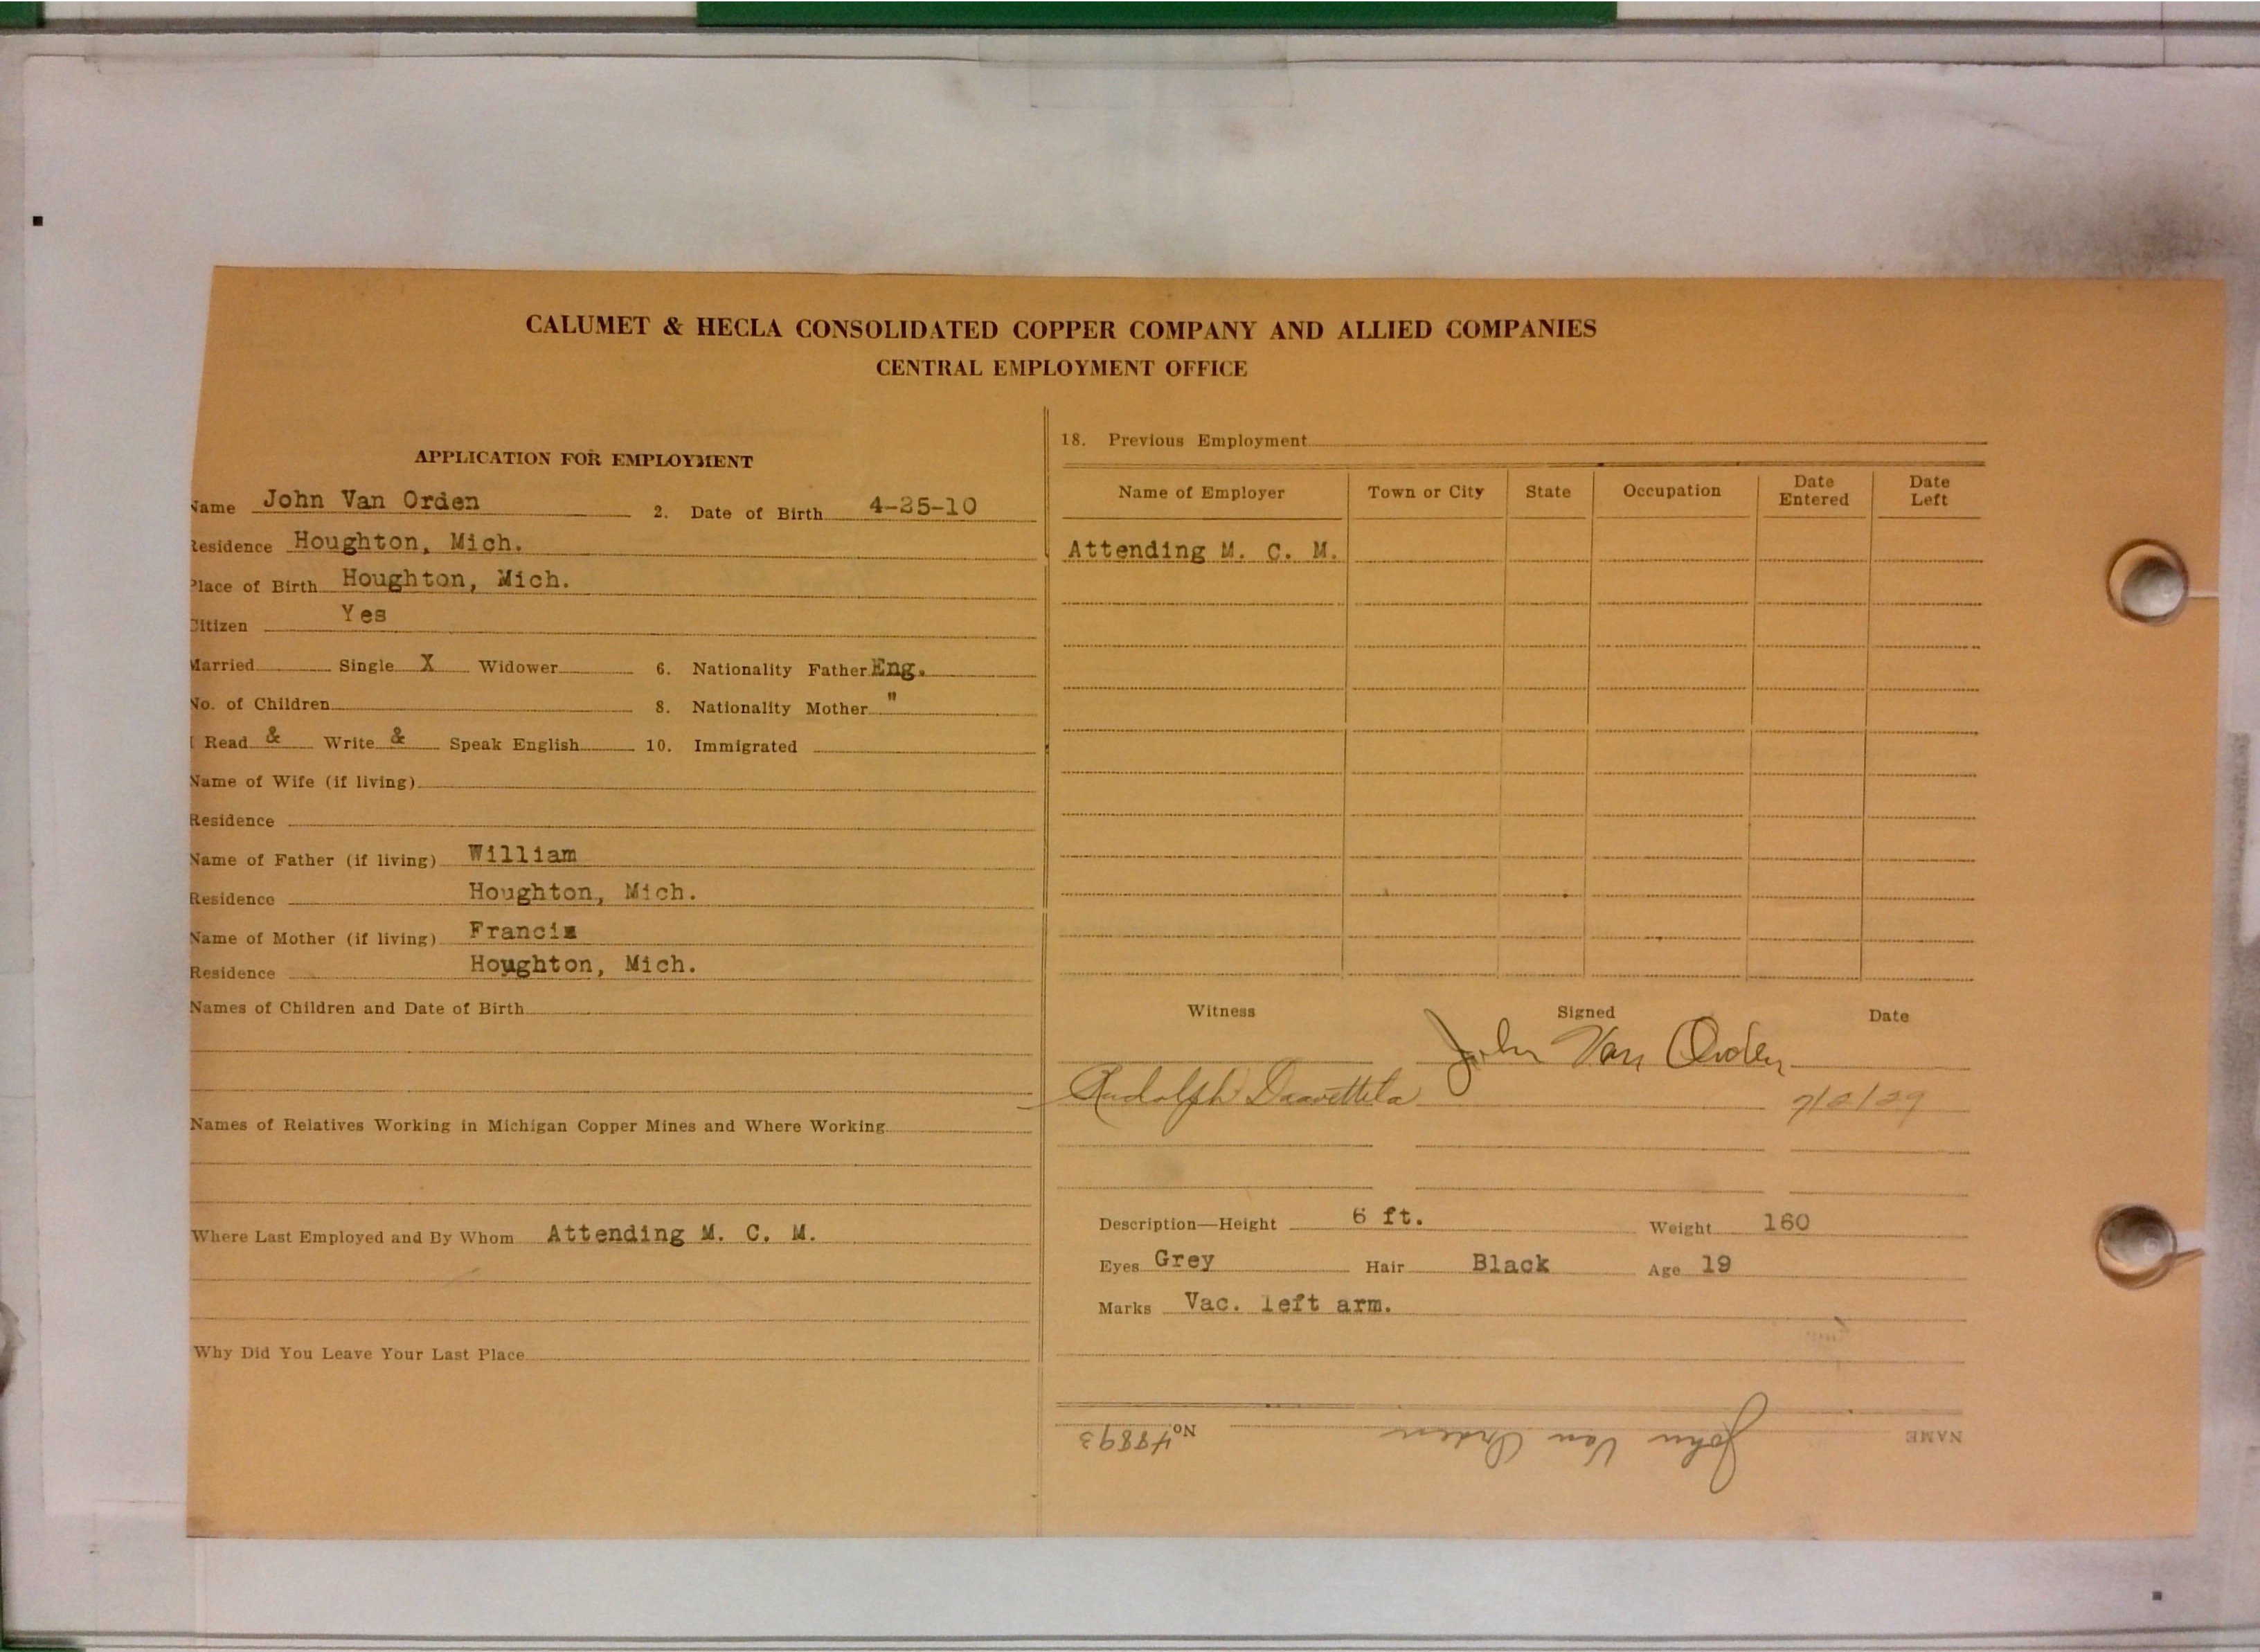 CALUMET & HECLA CONSOLIDATED COPPER COMPANY AND ALLIED COMPANIES
CENTRAL EMPLOYMENT OFFICE
APPLICATION FOR EMPLOYMENT
Name John Van Orden 2. Date of Birth 4-25-10
Residence Houghton, Mich.
Place of Birth Houghton, Mich.
Citizen Yes
Married Single X Widower 6. Nationality Father Eng.
No. of Children 8. Nationality Mother "
I Read & Write & Speak English 10. Immigrated
Name of Wife (if living)
Residence
Name of Father (if living) William
Residence Houghton, Mich.
Name of Mother (if living) Francis
Residence Houghton, Mich.
Names of Children and Date of Birth
Names of Relatives Working in Michigan Copper Mines and Where Working
Where Last Employed and By Whom Attending M. C. M.
Why Did You Leave Your Last Place
18. Previous Employment
Name of Employer Town or City State Occupation Date Entered Date Left
Attending M. C. M.
Witness Signed Date
John Van Orden
Rudolph 7/2/29
Description—Height 6 ft. Weight 160
Eyes Grey Hair Black Age 19
Marks Vac. left arm.
NAME John Van Orden No. 48893